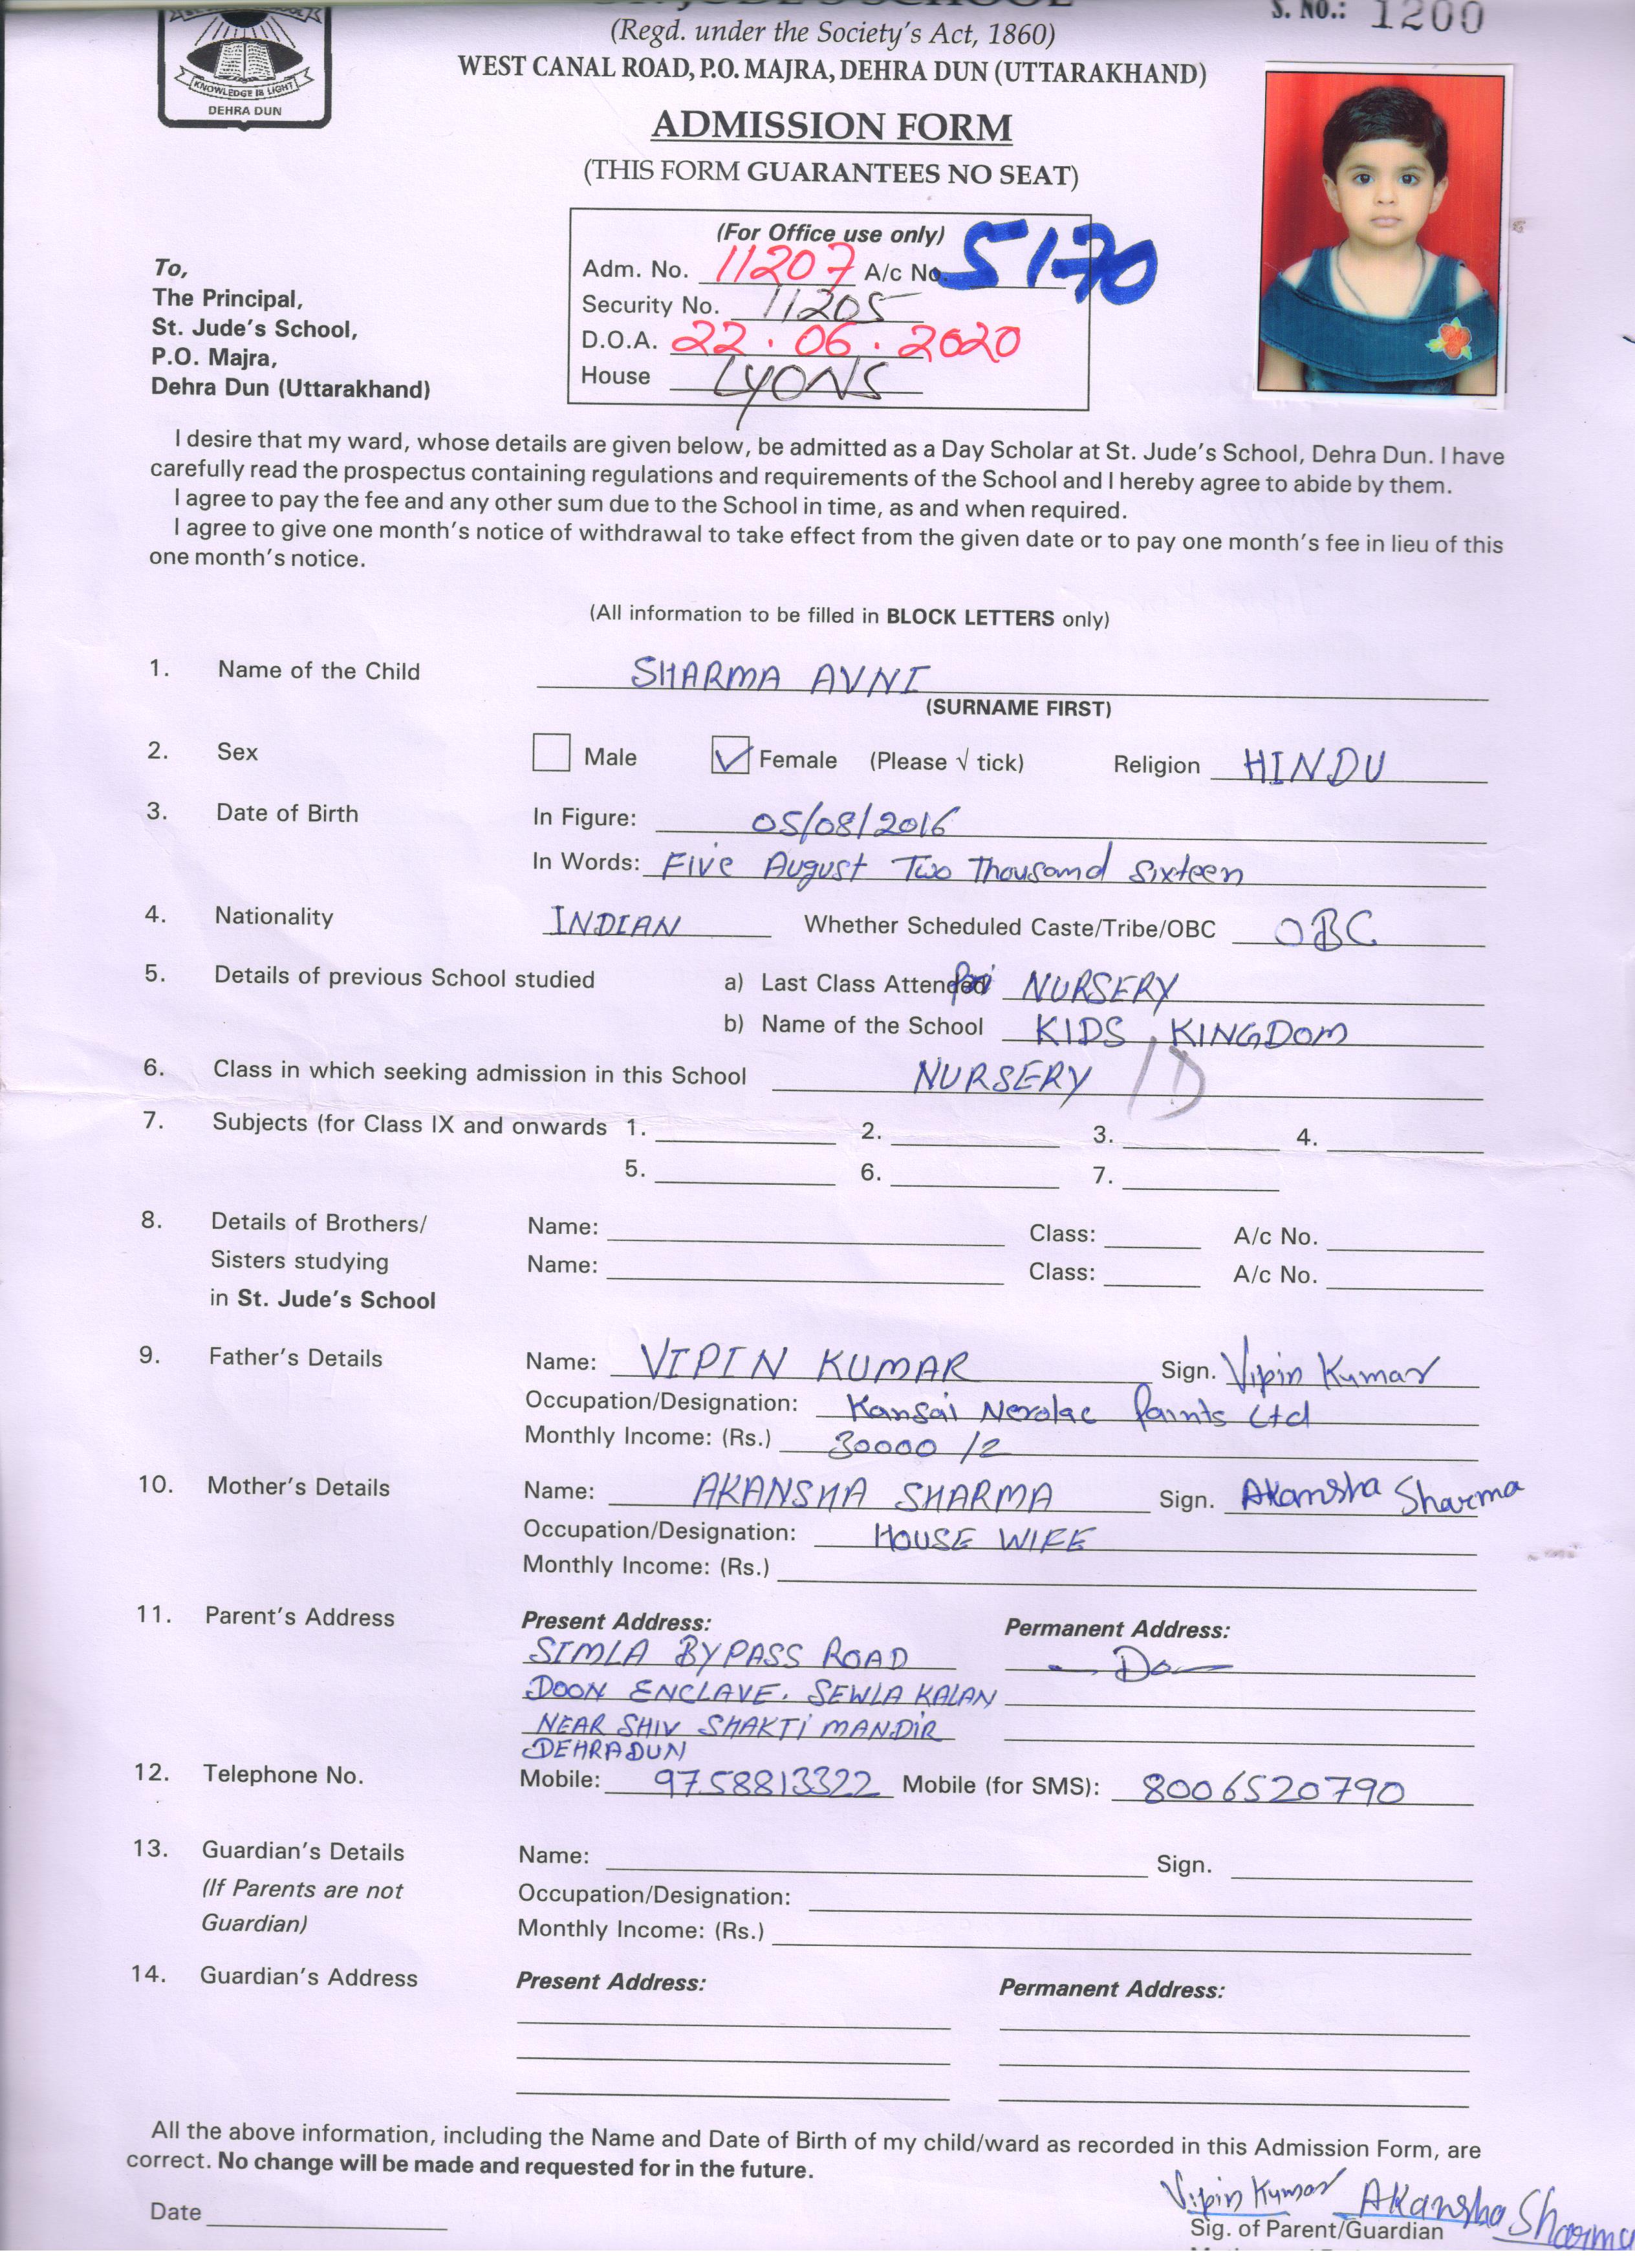 S. NO.: 1200
(Regd. under the Society's Act, 1860)
WEST CANAL ROAD, P.O. MAJRA, DEHRA DUN (UTTARAKHAND)
KNOWLEDGE IS LIGHT
DEHRA DUN
ADMISSION FORM
(THIS FORM GUARANTEES NO SEAT)
(For Office use only)
Adm. No. 11207 A/c No. 5170
Security No. 11205
D.O.A. 22.06.2020
House LYONS
To,
The Principal,
St. Jude's School,
P.O. Majra,
Dehra Dun (Uttarakhand)
I desire that my ward, whose details are given below, be admitted as a Day Scholar at St. Jude's School, Dehra Dun. I have
carefully read the prospectus containing regulations and requirements of the School and I hereby agree to abide by them.
I agree to pay the fee and any other sum due to the School in time, as and when required.
I agree to give one month's notice of withdrawal to take effect from the given date or to pay one month's fee in lieu of this
one month's notice.
(All information to be filled in BLOCK LETTERS only)
1. Name of the Child SHARMA AVNI
(SURNAME FIRST)
2. Sex Male Female (Please √ tick) Religion HINDU
3. Date of Birth In Figure: 05/08/2016
In Words: Five August Two Thousand Sixteen
4. Nationality INDIAN Whether Scheduled Caste/Tribe/OBC OBC
5. Details of previous School studied a) Last Class Attended NURSERY
b) Name of the School KIDS KINGDOM
6. Class in which seeking admission in this School NURSERY /D
7. Subjects (for Class IX and onwards 1. 2. 3. 4.
5. 6. 7.
8. Details of Brothers/ Name: Class: A/c No.
Sisters studying Name: Class: A/c No.
in St. Jude's School
9. Father's Details Name: VIPIN KUMAR Sign. Vipin Kumar
Occupation/Designation: Kansai Nerolac Paints Ltd
Monthly Income: (Rs.) 30000 /
10. Mother's Details Name: AKANSHA SHARMA Sign. Akansha Sharma
Occupation/Designation: HOUSE WIFE
Monthly Income: (Rs.)
11. Parent's Address Present Address: Permanent Address:
SIMLA BYPASS ROAD — Do —
DOON ENCLAVE. SEWLA KALAN
NEAR SHIV SHAKTI MANDIR
DEHRADUN
12. Telephone No. Mobile: 9758813322 Mobile (for SMS): 8006520790
13. Guardian's Details Name: Sign.
(If Parents are not Occupation/Designation:
Guardian) Monthly Income: (Rs.)
14. Guardian's Address Present Address: Permanent Address:
All the above information, including the Name and Date of Birth of my child/ward as recorded in this Admission Form, are
correct. No change will be made and requested for in the future.
Vipin Kumar Akansha Sharma
Date Sig. of Parent/Guardian